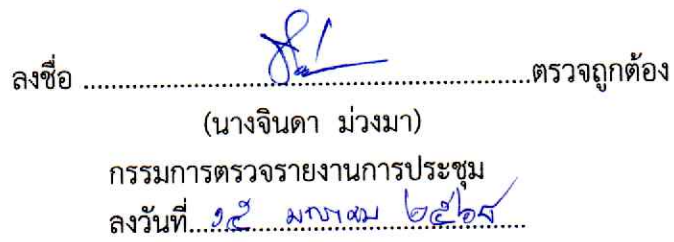 ลงชื่อ ........................................................ตรวจถูกต้อง
(นางจินดา ม่วงมา)
กรรมการตรวจรายงานการประชุม
ลงวันที่..๑๕ มกราคม ๒๕๖๘..